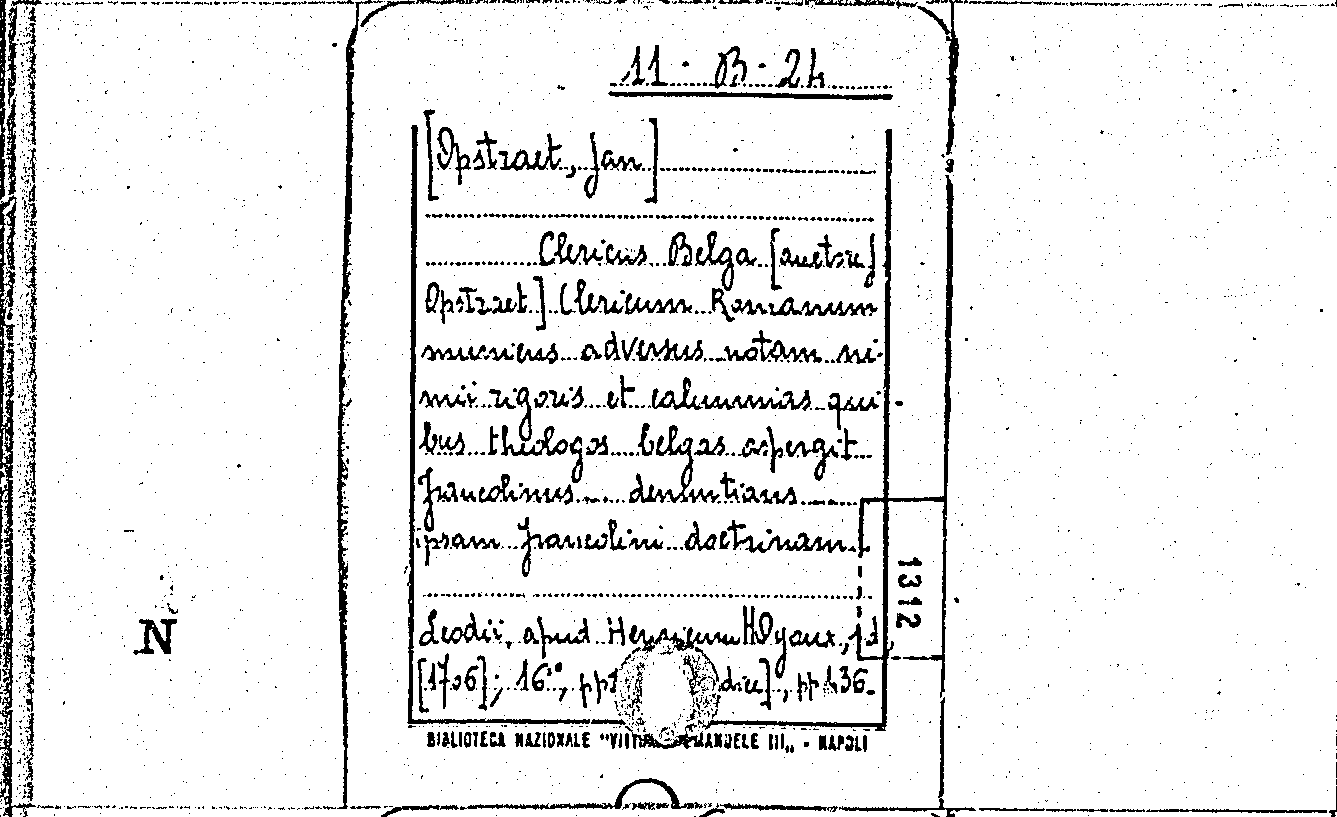 11 · B · 24
[Opstraet, Jan]
Clericus Belga [auctore
Opstraet] Clericum Romanum
muniens adversus notam ni-
mii rigoris et calumnias qui-
bus theologos belgas aspergit
Francolinus denuntians
ipsam Francolini doctrinam.
1312
N
Leodii, apud Henricum Hoyoux, s.d.
[1706]; 16°, pp
dice], pp 436.
BIBLIOTECA NAZIONALE "VITT EMANUELE III„ - NAPOLI